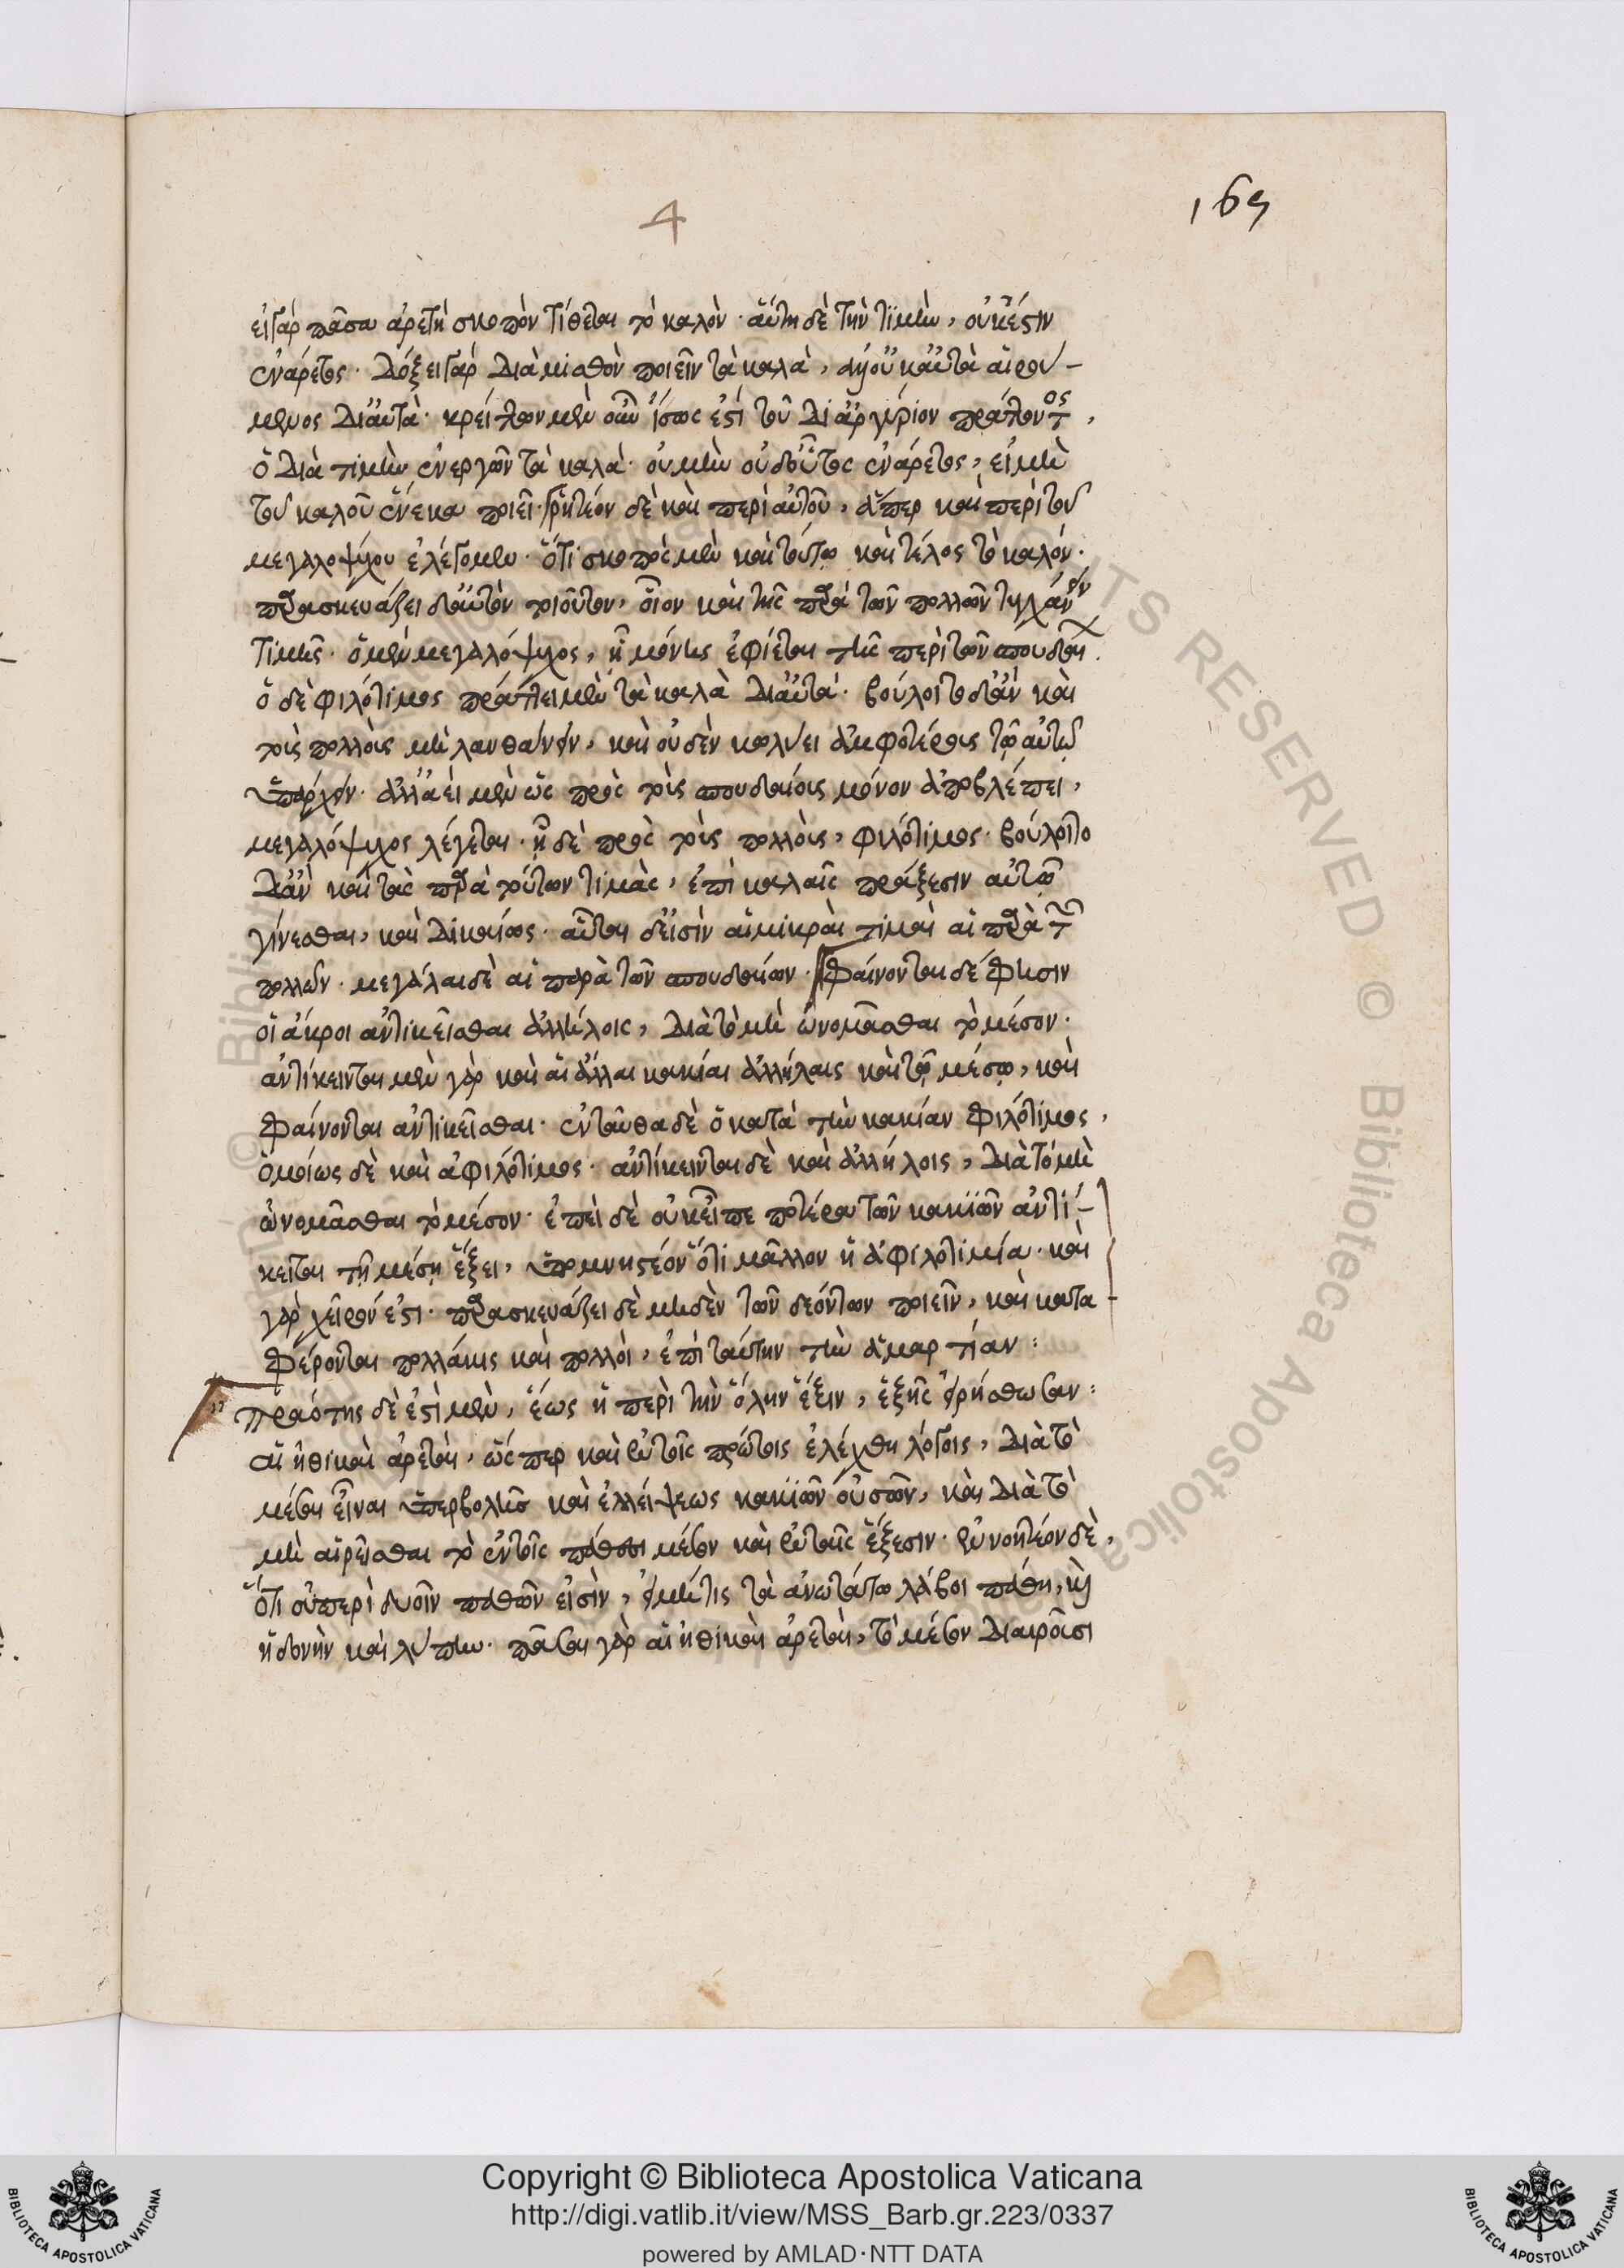 4
169
εἰ γὰρ πᾶσα ἀρετὴ σκοπὸν τίθεται τὸ καλὸν· αὕτη δὲ τὴν τϊμὴν, οὐκ ἔστιν
ἐνάρετος· δόξει γὰρ διὰ μισθὸν ποιεῖν τὰ καλὰ, ἀλλ' οὐκ αὐτὰ αἱρού-
μενος δι' αὐτὰ· κρείττων μὲν οὖν ἴσως ἐστὶ τοῦ δι' ἀργύριον πράττοντος,
ὁ διὰ τιμὴν ἐνεργῶν τὰ καλὰ· οὐ μὴν οὐδ' οὗτος ἐνάρετος, εἰ μὴ
τοῦ καλοῦ ἕνεκα ποιεῖ· ῥητέον δὲ καὶ περὶ αὐτοῦ, ἅπερ καὶ περὶ τοῦ
μεγαλοψύχου ἐλέγομεν· ὅτι σκοπὸς μὲν καὶ τούτῳ καὶ τέλος τὸ καλόν·
παρασκευάζει δ' αὑτὸν τοιοῦτον, οἷον καὶ τῆς παρὰ τῶν πολλῶν τυγχάνειν
τιμῆς· ὁ μὲν μεγαλόψυχος, ᾗ μόνης ἐφίεται τῆς περὶ τῶν σπουδαί
ὁ δὲ φιλότιμος πράττει μὲν τὰ καλὰ δι' αὐτά· βούλοιτο δ' ἂν καὶ
τοῖς πολλοῖς μὴ λανθάνειν, καὶ οὐδὲν κωλύει ἀμφοτέροις τῷ αὐτῷ
ὑπάρχειν· ἀλλὰ εἰ μὲν ὡς πρὸς τοῖς σπουδαίοις μόνον ἀποβλέπει,
μεγαλόψυχος λέγεται· ᾗ δὲ πρὸς τοῖς πολλοῖς, φιλότιμος· βούλοιτο
δ' ἂν καὶ τὰς παρὰ τούτων τιμὰς, ἐπὶ καλαῖς πράξεσιν αὐτῷ
γίνεσθαι, καὶ δικαίως· αὗται δ' εἰσὶν αἱ μικραὶ τιμαὶ αἱ παρὰ τῶν
πολλῶν· μεγάλαι δὲ αἱ παρὰ τῶν σπουδαίων· Φαίνονται δέ φησιν
οἱ ἄκροι ἀντικεῖσθαι ἀλλήλοις, διὰ τὸ μὴ ὠνομᾶσθαι τὸ μέσον·
ἀντίκεινται μὲν γὰρ καὶ αἱ ἄλλαι κακίαι ἀλλήλαις καὶ τῷ μέσῳ, καὶ
φαίνονται ἀντικεῖσθαι· ἐνταῦθα δὲ ὁ κατὰ τὴν κακίαν φιλότιμος,
ὁμοίως δὲ καὶ ἀφιλότιμος· ἀντίκεινται δὲ καὶ ἀλλήλοις, διὰ τὸ μὴ
ὠνομᾶσθαι τὸ μέσον· ἐπεὶ δὲ οὐκ εἶπε ποτέρα τῶν κακϊῶν ἀντί-
κειται τῇ μέσῃ ἕξει, ὑπομνηστέον ὅτι μᾶλλον ἡ ἀφιλοτιμία· καὶ
γὰρ χεῖρόν ἐστι· παρασκευάζει δὲ μηδὲν τῶν δεόντων ποιεῖν, καὶ κατα-
φέρονται πολλάκις καὶ πολλοὶ, ἐπὶ ταύτην τὴν ἁμαρτίαν:
Πραότης δὲ ἐστὶ μὲν, ἕως ἡ περὶ τὴν ὅλην ἕξιν, ἑξῆς εἰρήσθωσαν:
αἱ ἠθικαὶ ἀρεταὶ, ὥσπερ καὶ ἐν τοῖς πρώτοις ἐλέχθη λόγοις, διὰ τὸ
μέσαι εἶναι ὑπερβολῆς καὶ ἐλλείψεως κακϊῶν οὐσῶν, καὶ διὰ τὸ
μὴ αἱρεῖσθαι τὸ ἐν τοῖς πάθεσι μέσον καὶ ἐν ταῖς ἕξεσιν· ἐννοητέον δὲ,
ὅτι οὐ περὶ δυοῖν παθῶν εἰσὶν, εἰ μή τις τὰ ἀνωτάτω λάβοι πάθη, καὶ
ἡδονὴν καὶ λύπην· πᾶσαι γὰρ αἱ ἠθικαὶ ἀρεταὶ, τὸ μέσον διαιροῦσι
Copyright © Biblioteca Apostolica Vaticana
http://digi.vatlib.it/view/MSS_Barb.gr.223/0337
powered by AMLAD·NTT DATA
BIBLIOTECA APOSTOLICA VATICANA
BIBLIOTECA APOSTOLICA VATICANA